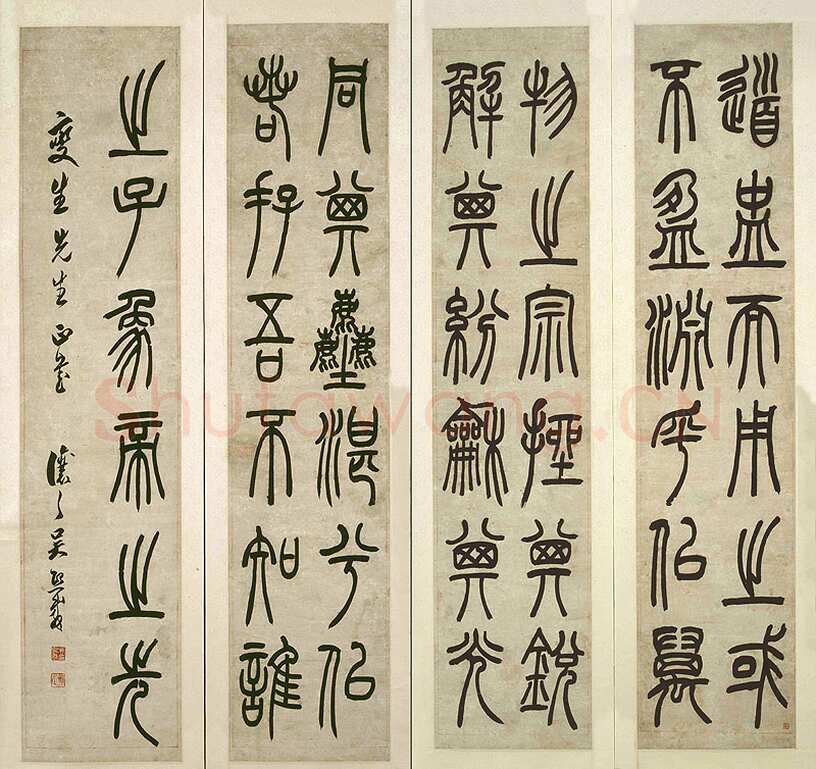 道盅而用之或
不盈淵乎佀萬
物之宗挫其銳
解其紛龢其光
同其塵湛兮佀
若存吾不知誰
之子象帝之先
生先生正 讓之吳熙載
Shufawang.CN